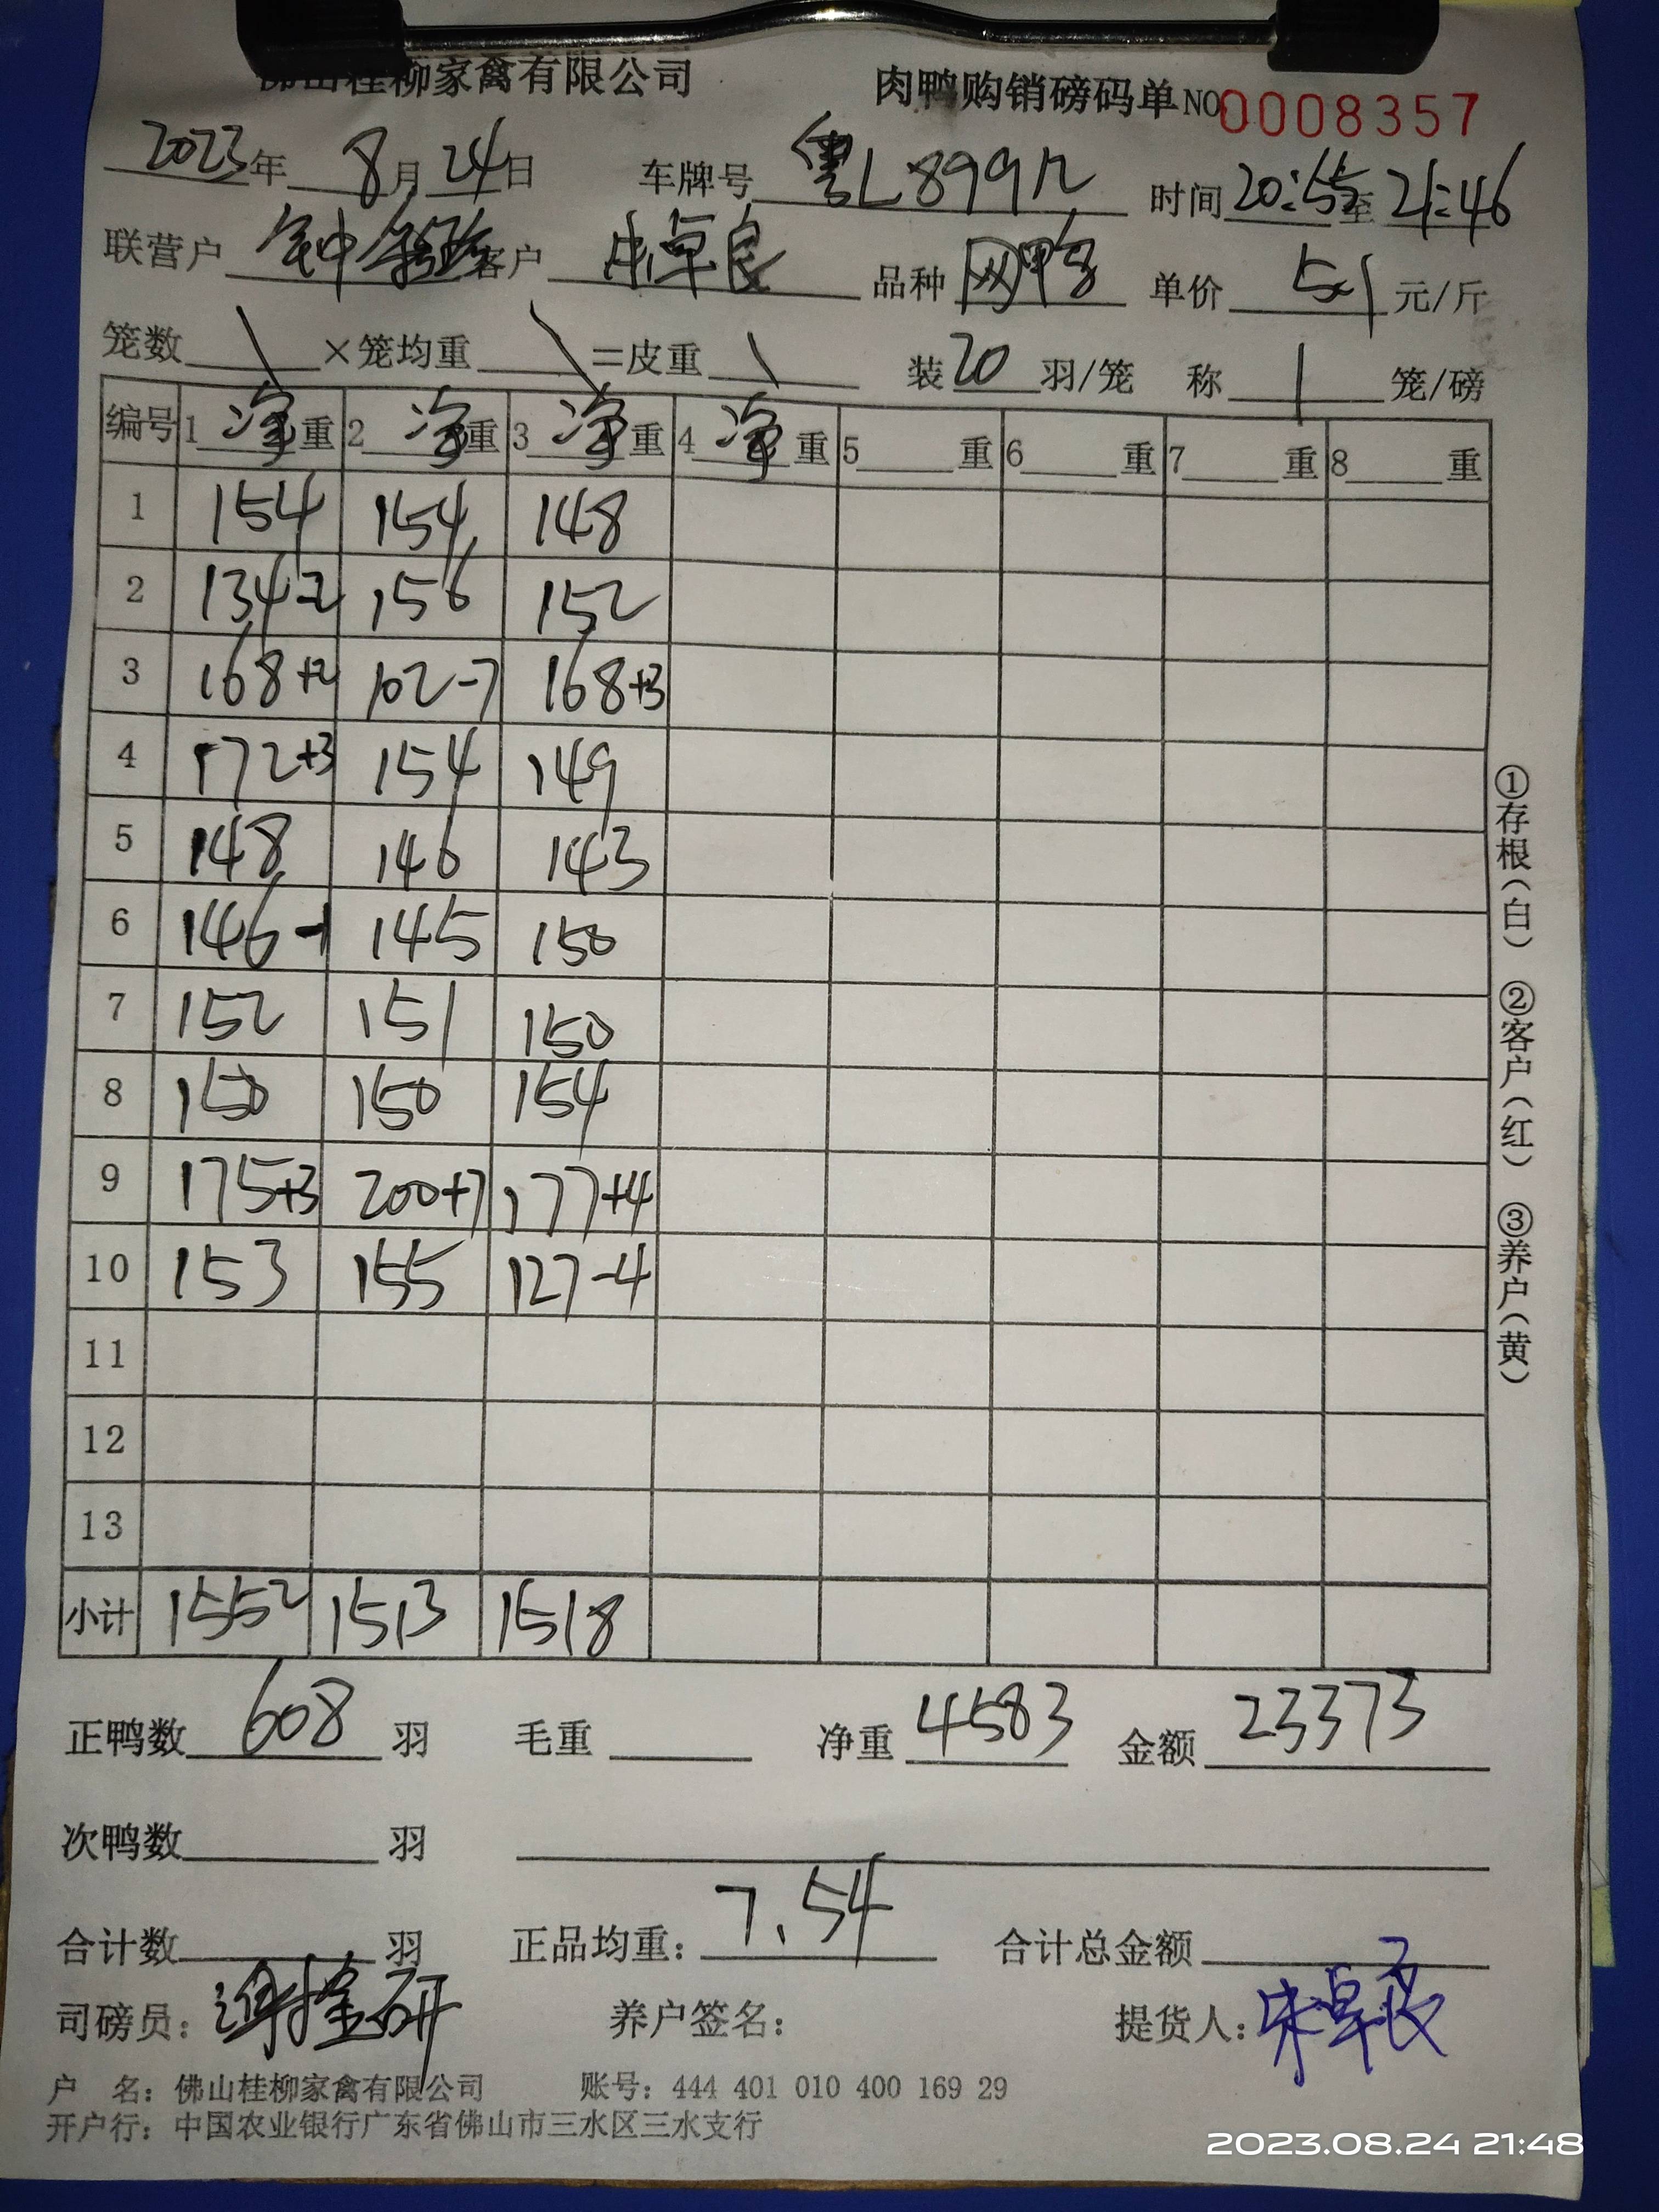 佛山桂柳家禽有限公司 肉鸭购销磅码单 NO 0008357
2023年 8月 24日 车牌号 粤L 899 时间 20:55 至 21:46
联营户 钟 客户 卓良 品种 网鸭 单价 5.1 元/斤
笼数 \ ×笼均重 \ =皮重 \ 装 20 羽/笼 称 1 笼/磅
编号 1 净 重 2 净 重 3 净 重 4 净 重 5 重 6 重 7 重 8 重
1 154 154 148
2 134-2 156 152
3 168+2 102-7 168+3
4 172+3 154 149
5 148 146 143
6 146-1 145 150
7 152 151 150
8 150 150 154
9 175+3 200+7 177+4
10 153 155 127-4
11
12
13
小计 1552 1513 1518
正鸭数 608 羽 毛重 净重 4583 金额 23373
次鸭数 羽
合计数 羽 正品均重: 7.54 合计总金额
司磅员: 研 养户签名: 提货人: 宋卓良
户 名: 佛山桂柳家禽有限公司 账号: 444 401 010 400 169 29
开户行: 中国农业银行广东省佛山市三水区三水支行
①存根(白) ②客户(红) ③养户(黄)
2023.08.24 21:48